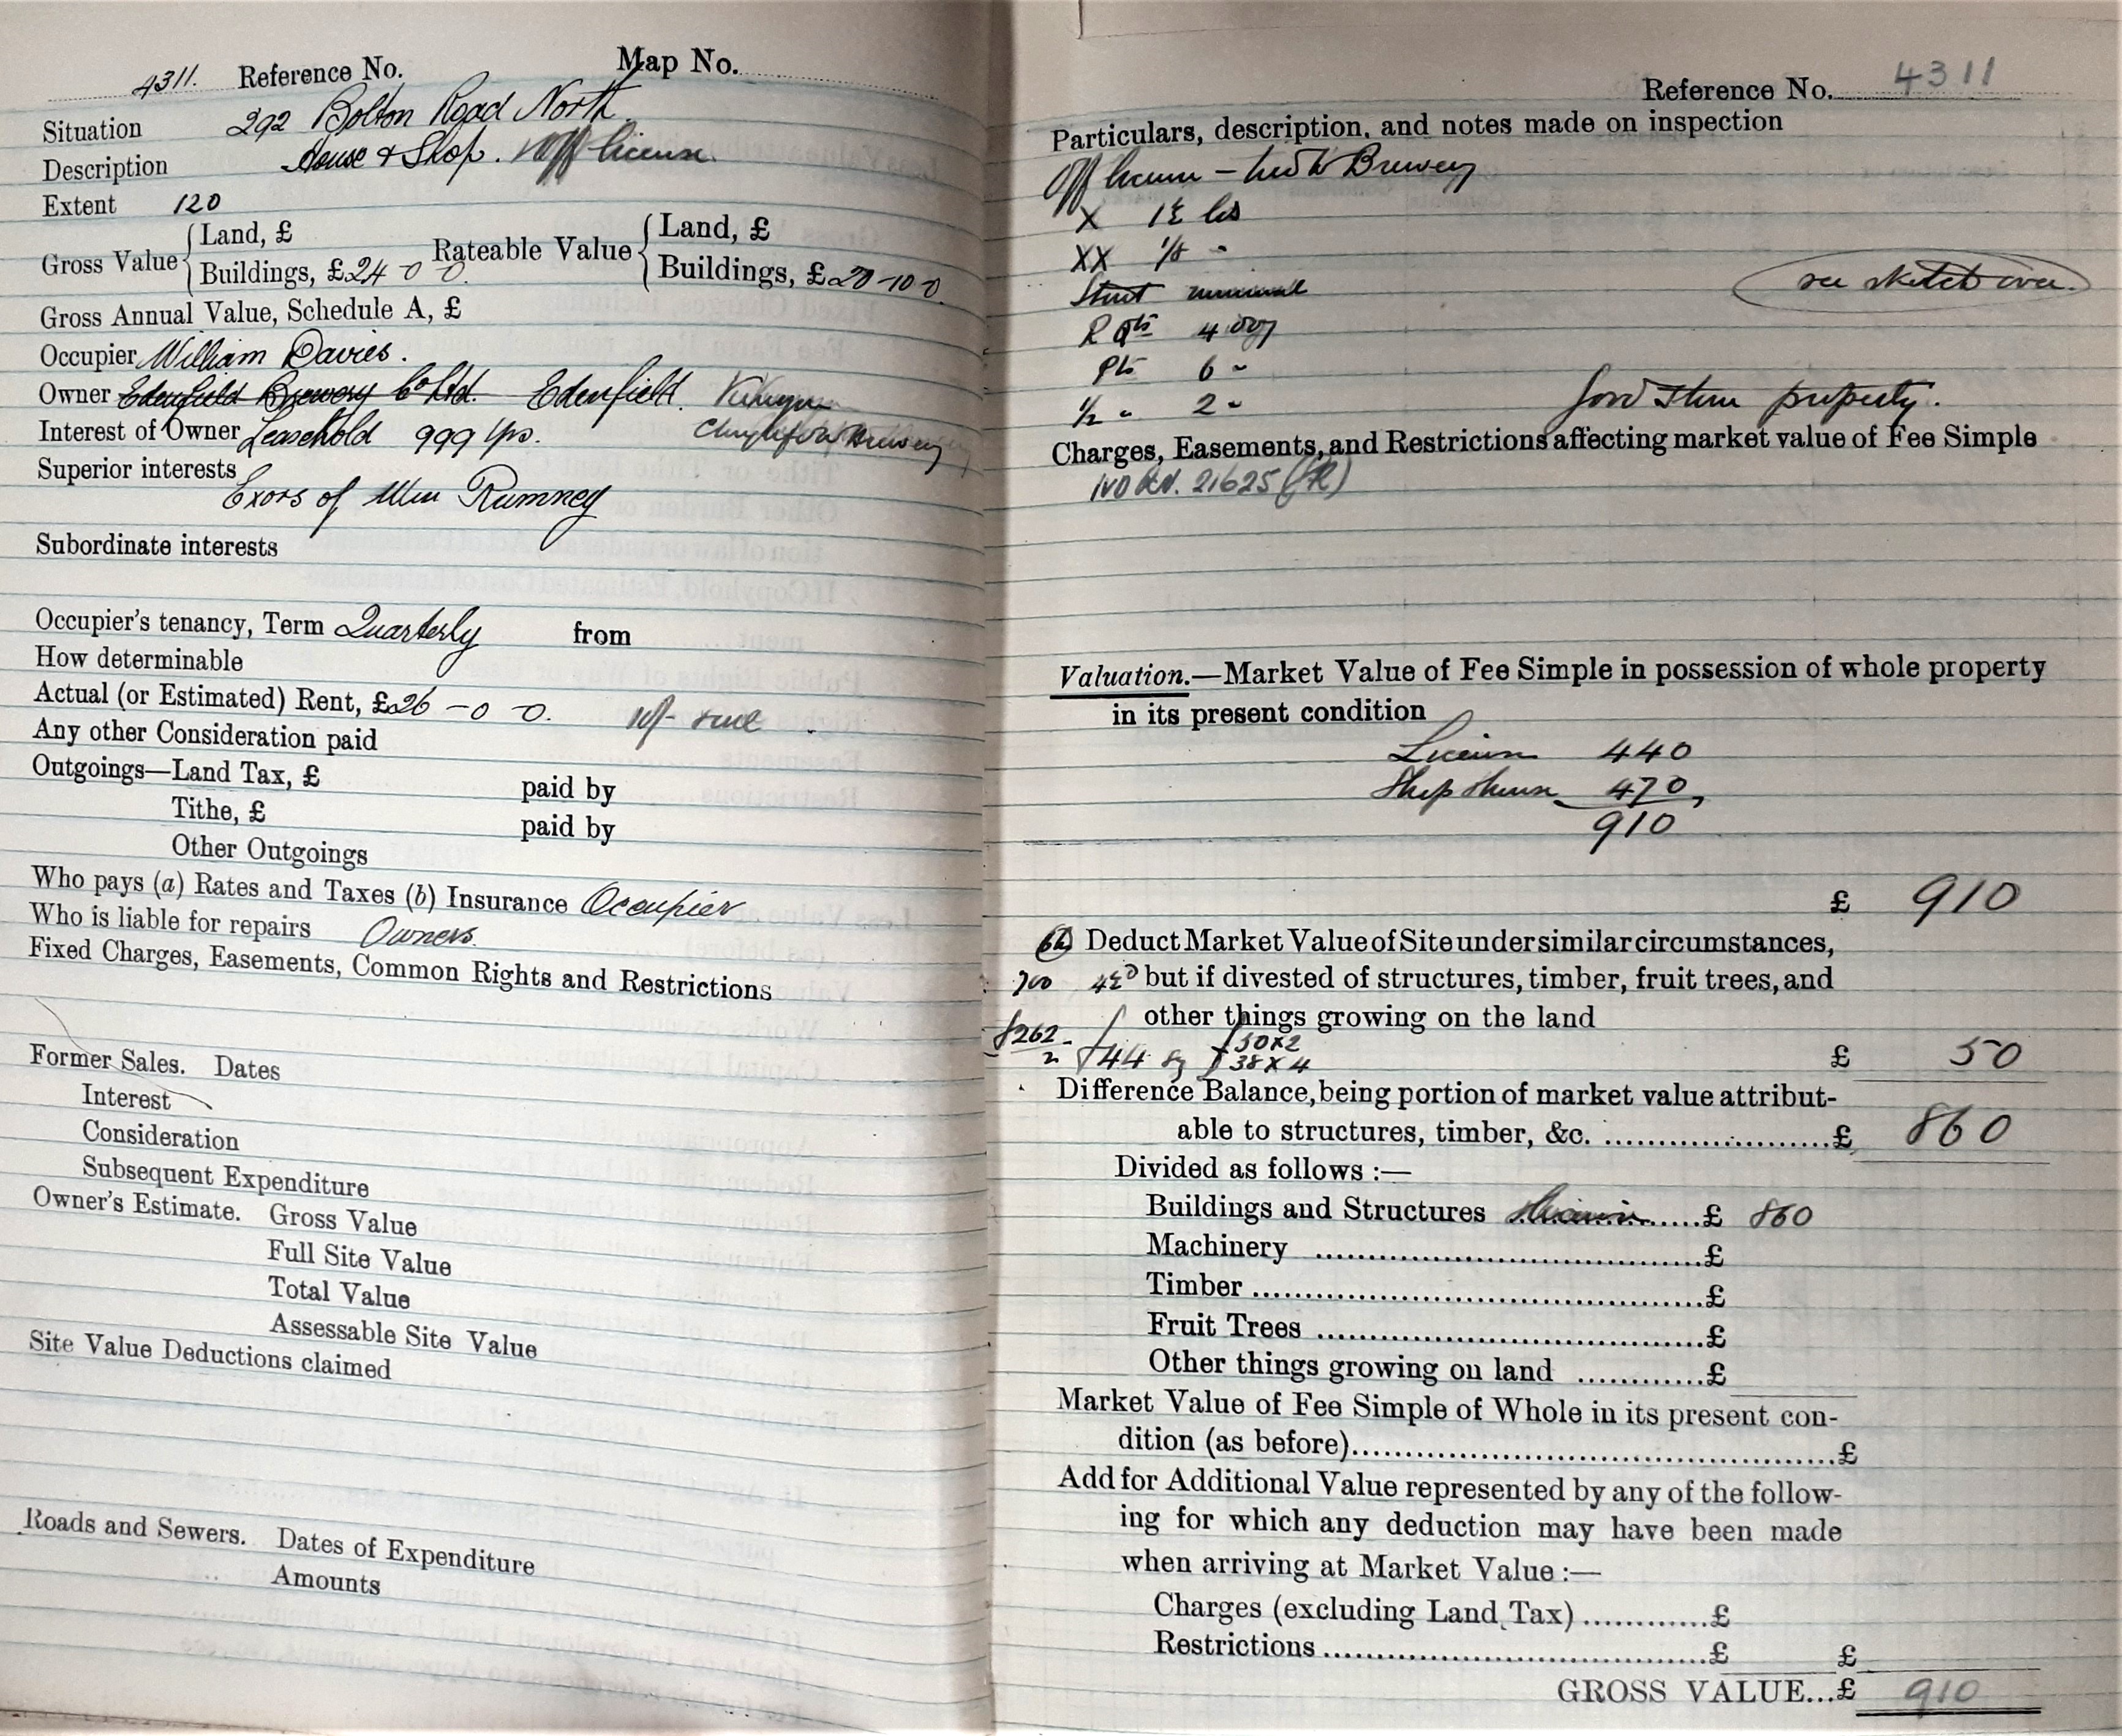 4311. Reference No. Map No.
Situation 292 Bolton Road North.
Description House & Shop. Off license.
Extent 120
Gross Value { Land, £ Rateable Value { Land, £
Buildings, £24-0 0. Buildings, £20-10-0.
Gross Annual Value, Schedule A, £
Occupier William Davies.
Owner Edenfield Brewery Co Ltd. Edenfield.
Interest of Owner Leasehold 999 yrs. Brewery
Superior interests
Exors of Wm Rumney
Subordinate interests
Occupier's tenancy, Term Quarterly from
How determinable
Actual (or Estimated) Rent, £26-0-0.
Any other Consideration paid
Outgoings—Land Tax, £ paid by
Tithe, £ paid by
Other Outgoings
Who pays (a) Rates and Taxes (b) Insurance Occupier
Who is liable for repairs Owners.
Fixed Charges, Easements, Common Rights and Restrictions
Former Sales. Dates
Interest
Consideration
Subsequent Expenditure
Owner's Estimate. Gross Value
Full Site Value
Total Value
Assessable Site Value
Site Value Deductions claimed
Roads and Sewers. Dates of Expenditure
Amounts
Reference No. 4311
Particulars, description, and notes made on inspection
Off licence - Brewery
X
XX
see sketch over.
4 doz
Pts 6 "
1/2 " 2 "
property.
Charges, Easements, and Restrictions affecting market value of Fee Simple
21625
Valuation.—Market Value of Fee Simple in possession of whole property
in its present condition
Licence 440
Shop & house 470
910
£ 910
Deduct Market Value of Site under similar circumstances,
but if divested of structures, timber, fruit trees, and
other things growing on the land
50x2
38x4
£ 50
Difference Balance, being portion of market value attribut-
able to structures, timber, &c. ......................£ 860
Divided as follows :—
Buildings and Structures ......£ 860
Machinery ......................................£
Timber ............................................£
Fruit Trees ......................................£
Other things growing on land ............£
Market Value of Fee Simple of Whole in its present con-
dition (as before)................................................£
Add for Additional Value represented by any of the follow-
ing for which any deduction may have been made
when arriving at Market Value :—
Charges (excluding Land Tax) ............£
Restrictions ......................................£ £
GROSS VALUE...£ 910